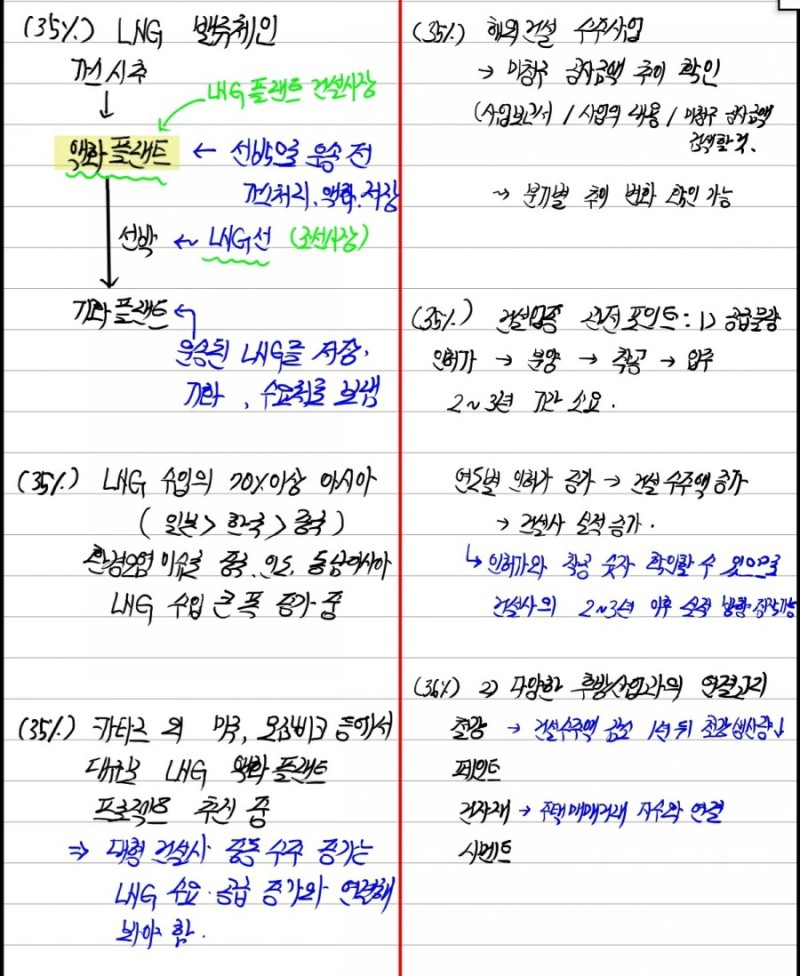 (35%) LNG 밸류체인
가스 시추
↓
LNG 플랜트 건설시장
액화 플랜트 ← 선박으로 운송 전
가스처리, 액화, 저장
선박 ← LNG선 (조선시장)
기화 플랜트 ←
운송된 LNG를 저장,
기화, 수요처로 보냄
(35%) LNG 수입의 70%이상 아시아
(일본 > 한국 > 중국)
환경오염 이슈로 중국, 인도, 동남아시아
LNG 수입 큰 폭 증가 중
(35%) 카타르 외 미국, 모잠비크 등에서
대규모 LNG 액화 플랜트
프로젝트 추진 중
⇒ 대형 건설사 중동 수주 증가는
LNG 수요·공급 증가와 연결해
봐야 함.
(35%) 해외건설 수주사업
→ 미청구 공사금액 추이 확인
(사업보고서 / 사업의 내용 / 미청구 공사금액
검색할 것.
~> 분기별 추이 변화 확인 가능
(35%) 건설업종 관전 포인트 : 1) 공급물량
인허가 → 분양 → 착공 → 입주
2~3년 기간 소요.
연도별 인허가 증가 → 건설 수주액 증가
→ 건설사 실적 증가.
↳ 인허가와 착공 숫자 확인할 수 있으므로
건설사의 2~3년 이후 실적 방향 짐작가능
(36%) 2) 다양한 후방산업과의 연결고리
철강 → 건설수주액 감소 1년 뒤 철강 생산량↓
페인트
건자재 → 주택매매거래 지수와 연결
시멘트